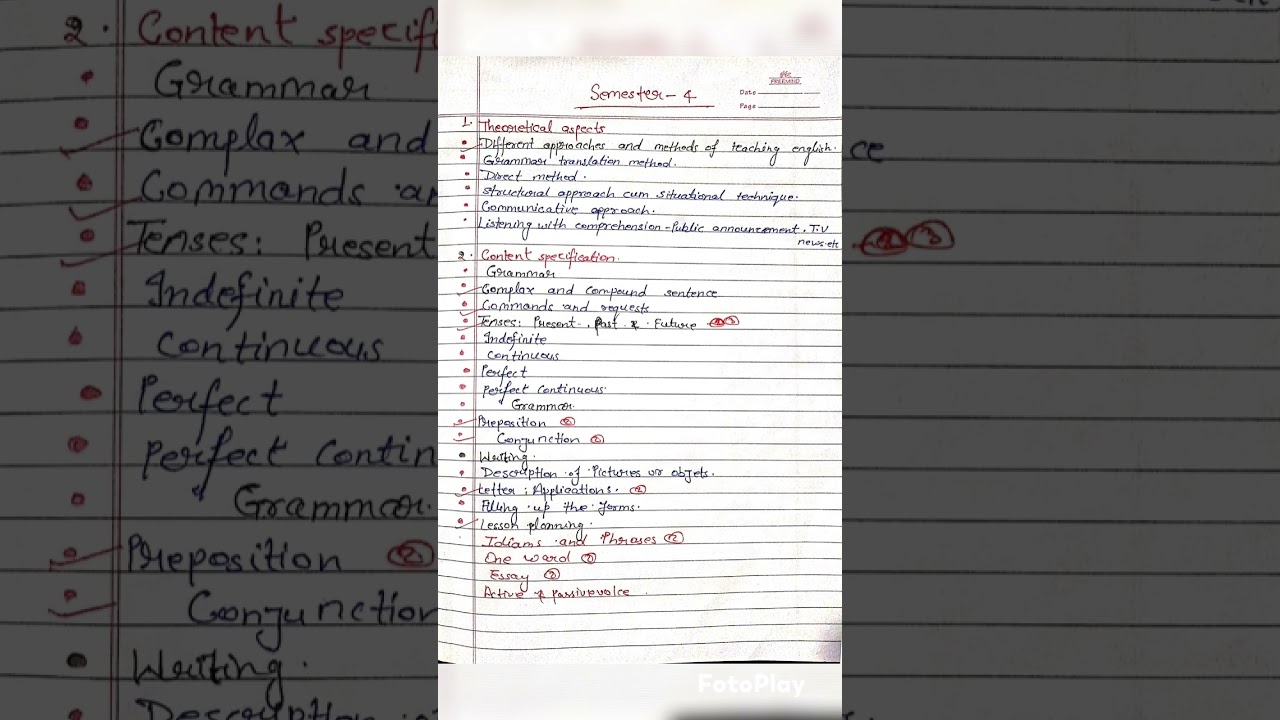 Semester-4
FREEMIND
Date
Page
1. Theoretical aspects
Different approaches and methods of teaching english.
Grammar translation method.
Direct method.
structural approach cum situational technique.
Communicative approach.
Listening with comprehension-Public announcement, T.V
news.etc
2. Content specification.
Grammar
Complax and compound sentence
Commands and requests
Tenses: Present, Past & Future ③
Indefinite
Continuous
Perfect
Perfect continuous
Grammar.
Preposition ②
Conjunction ②
Writing.
Description of Pictures or objets.
Letter; Applications. ②
Filling up the forms.
Lesson planning.
Idioms and Phrases ②
One word
Essay
Active & passive voice
FotoPlay